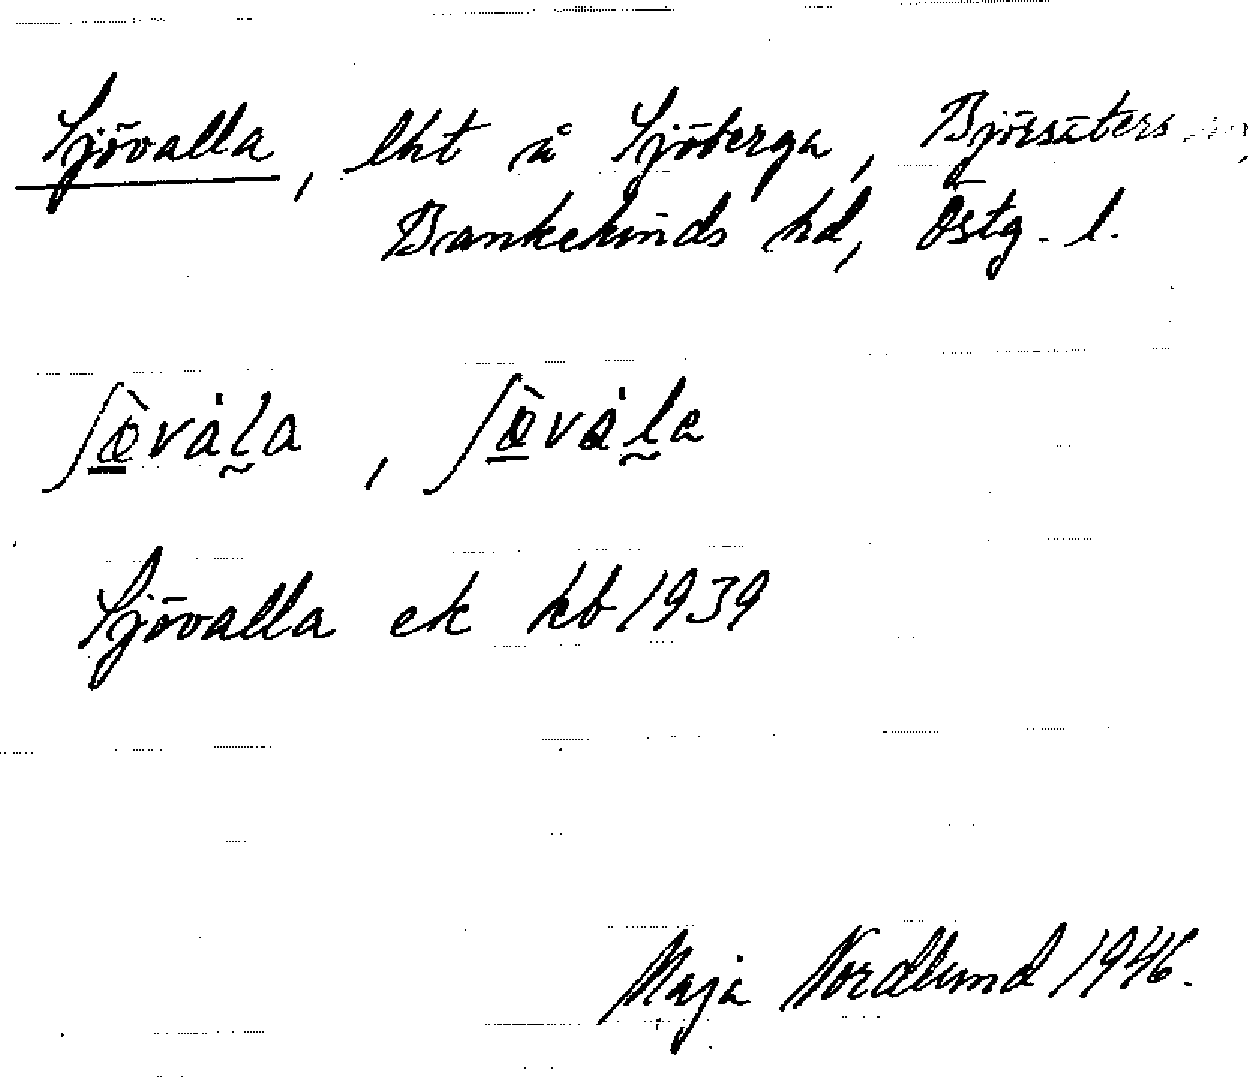 Sjövalla, lht å Sjöberga, Björsäters
Bankekinds hd, Östg. l.
ʃœ̀vàla, ʃœ̀vàla
Sjövalla ek kb 1939
Maja Nordlund 1946.